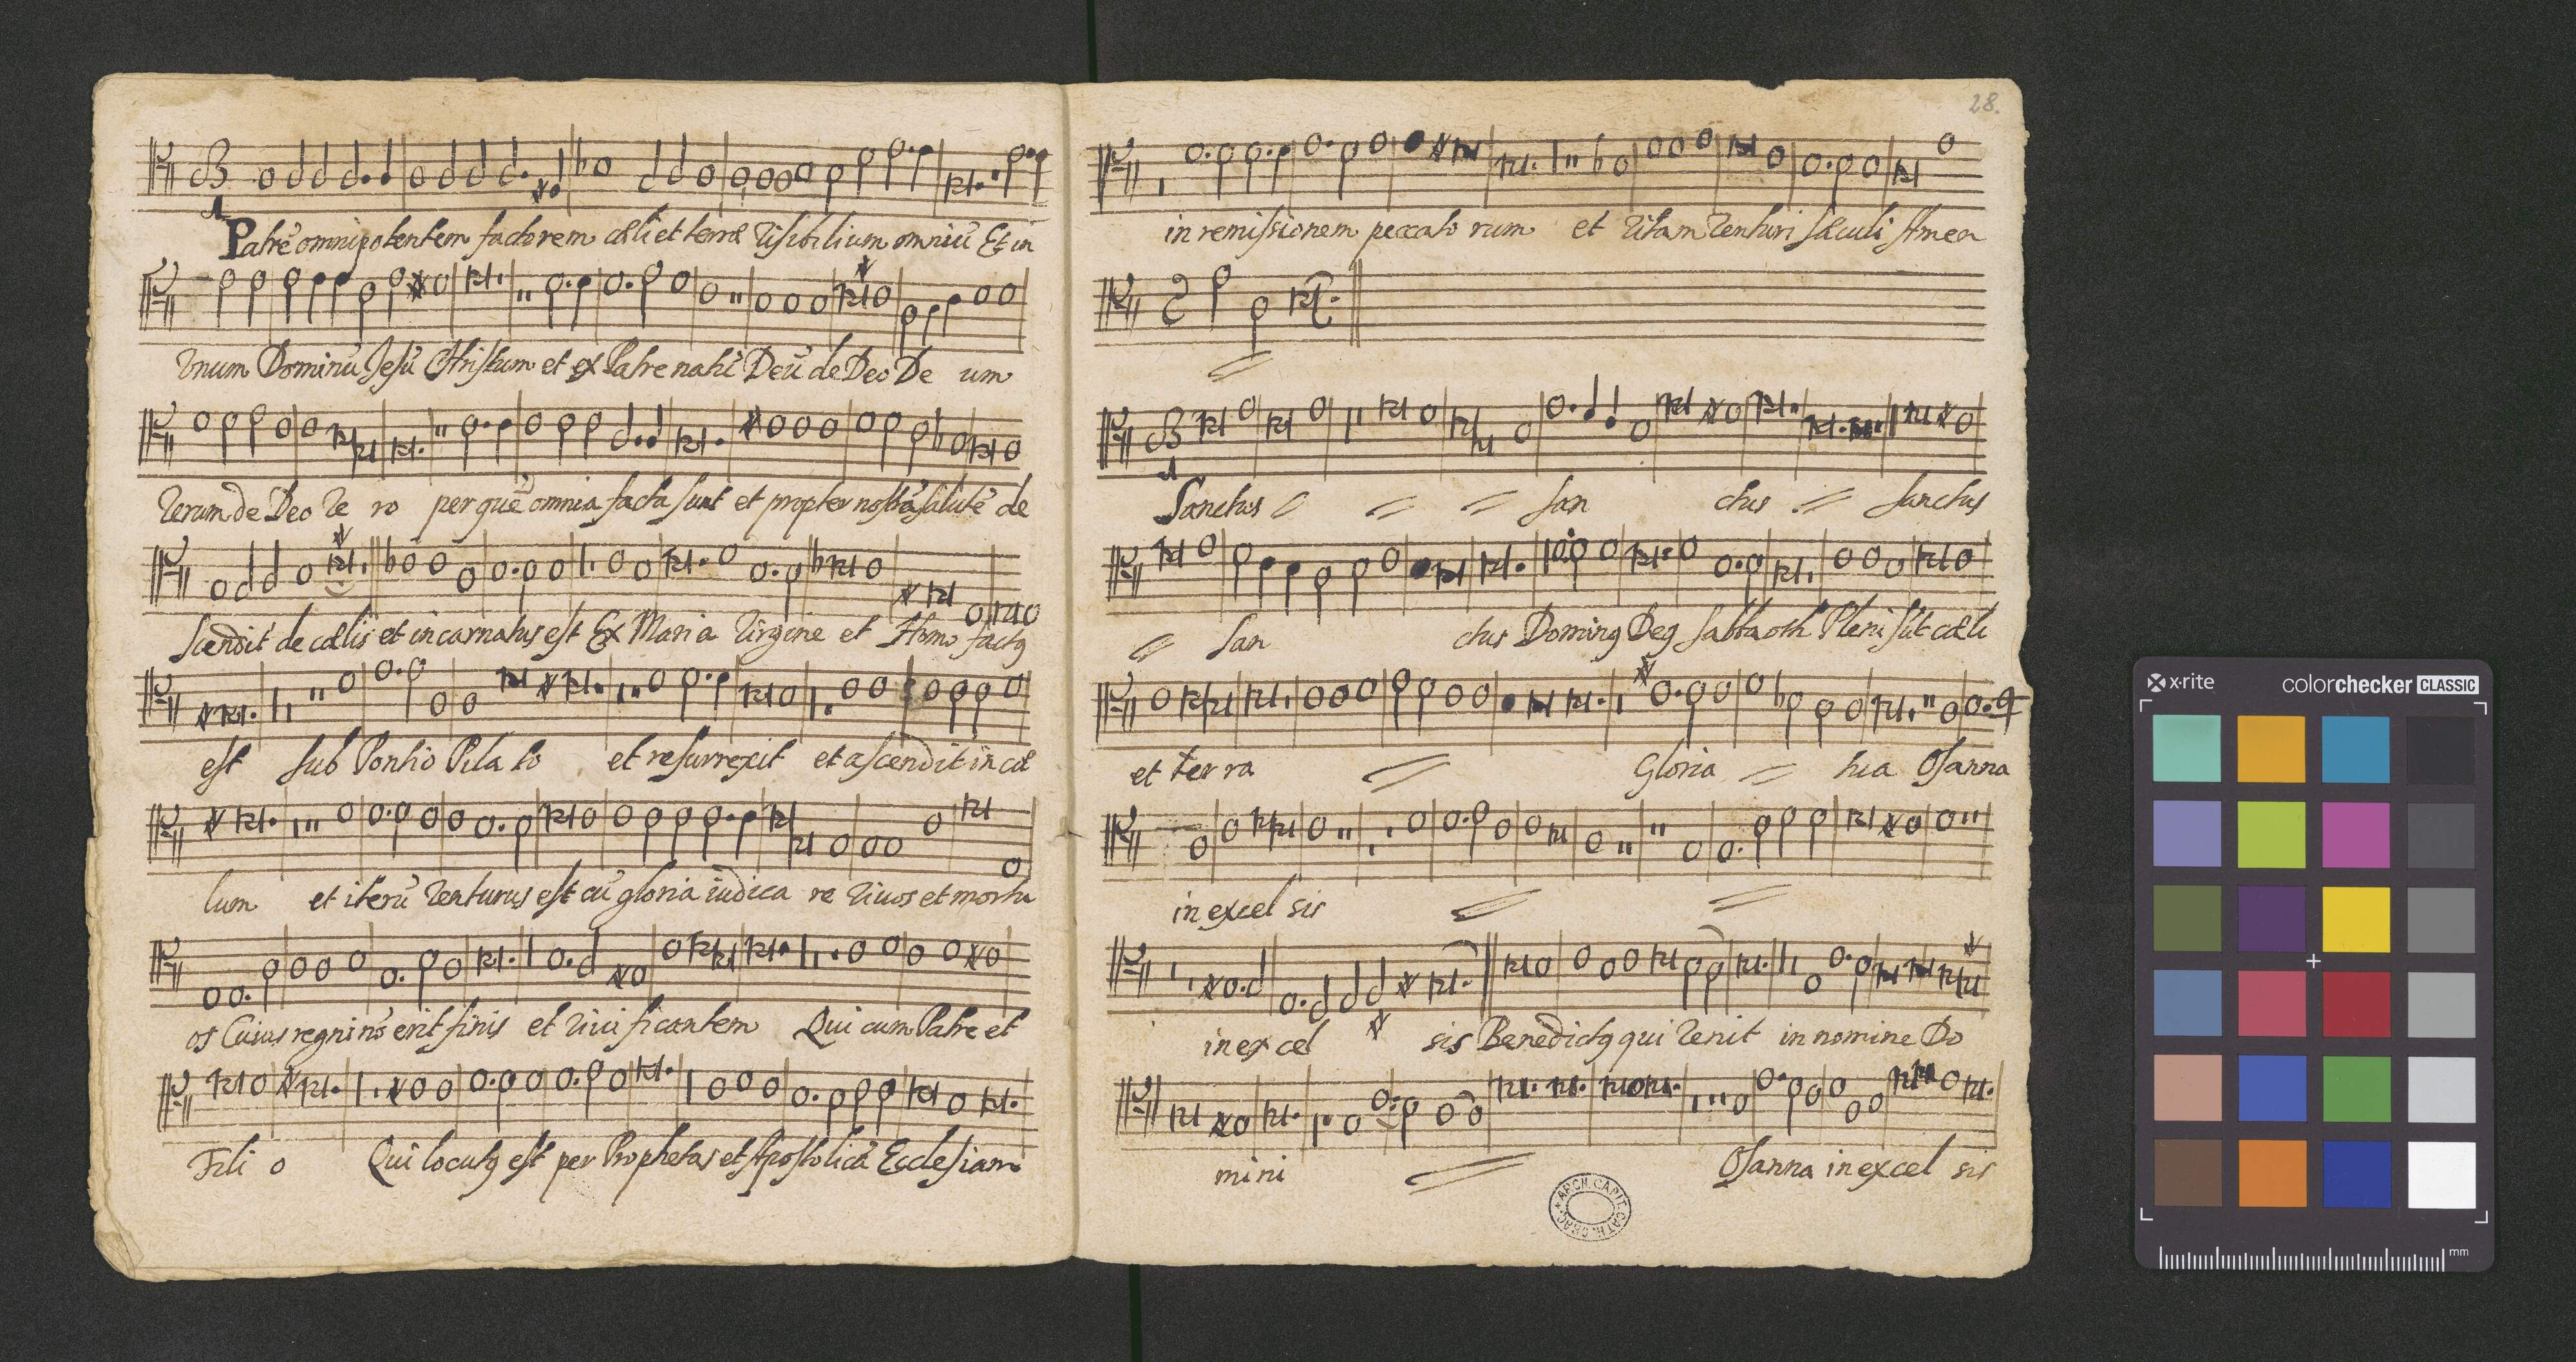 Patrẽ omnipotentem factorem cæli et terræ Visibilium omniũ Et in
Vnum Dominũ Jesũ Christum et ex Patre natũ Deũ de Deo De um
Verum de Deo Ve ro per quẽ omnia facta sunt et propter nostrã salutẽ de
scendit de cælis et incarnatus est Ex Maria Virgine et Homo factꝯ
est sub Pontio Pila to et resurrexit et ascendit in cæ
lum et iterũ Venturus est cũ gloria iudica re Vivos et mortu
os Cuius regni nõ erit finis et Vivi ficantem Qui cum Patre et
Fili o Qui locutꝯ est per Prophetas et Apostolicã Ecclesiam
28.
in remissionem peccato rum et Vitam Venturi sæculi Amen
Sanctus san ctus sanctus
san ctus Dominꝯ Deꝯ sabbaoth Pleni sũt cæli
et ter ra Gloria tua Osanna
in excel sis
in ex cel sis Benedictꝯ qui Venit in nomine Do
mini Osanna in excel sis
ARCH. CAPIT. CATH. CRAC.
x·rite colorchecker CLASSIC
mm